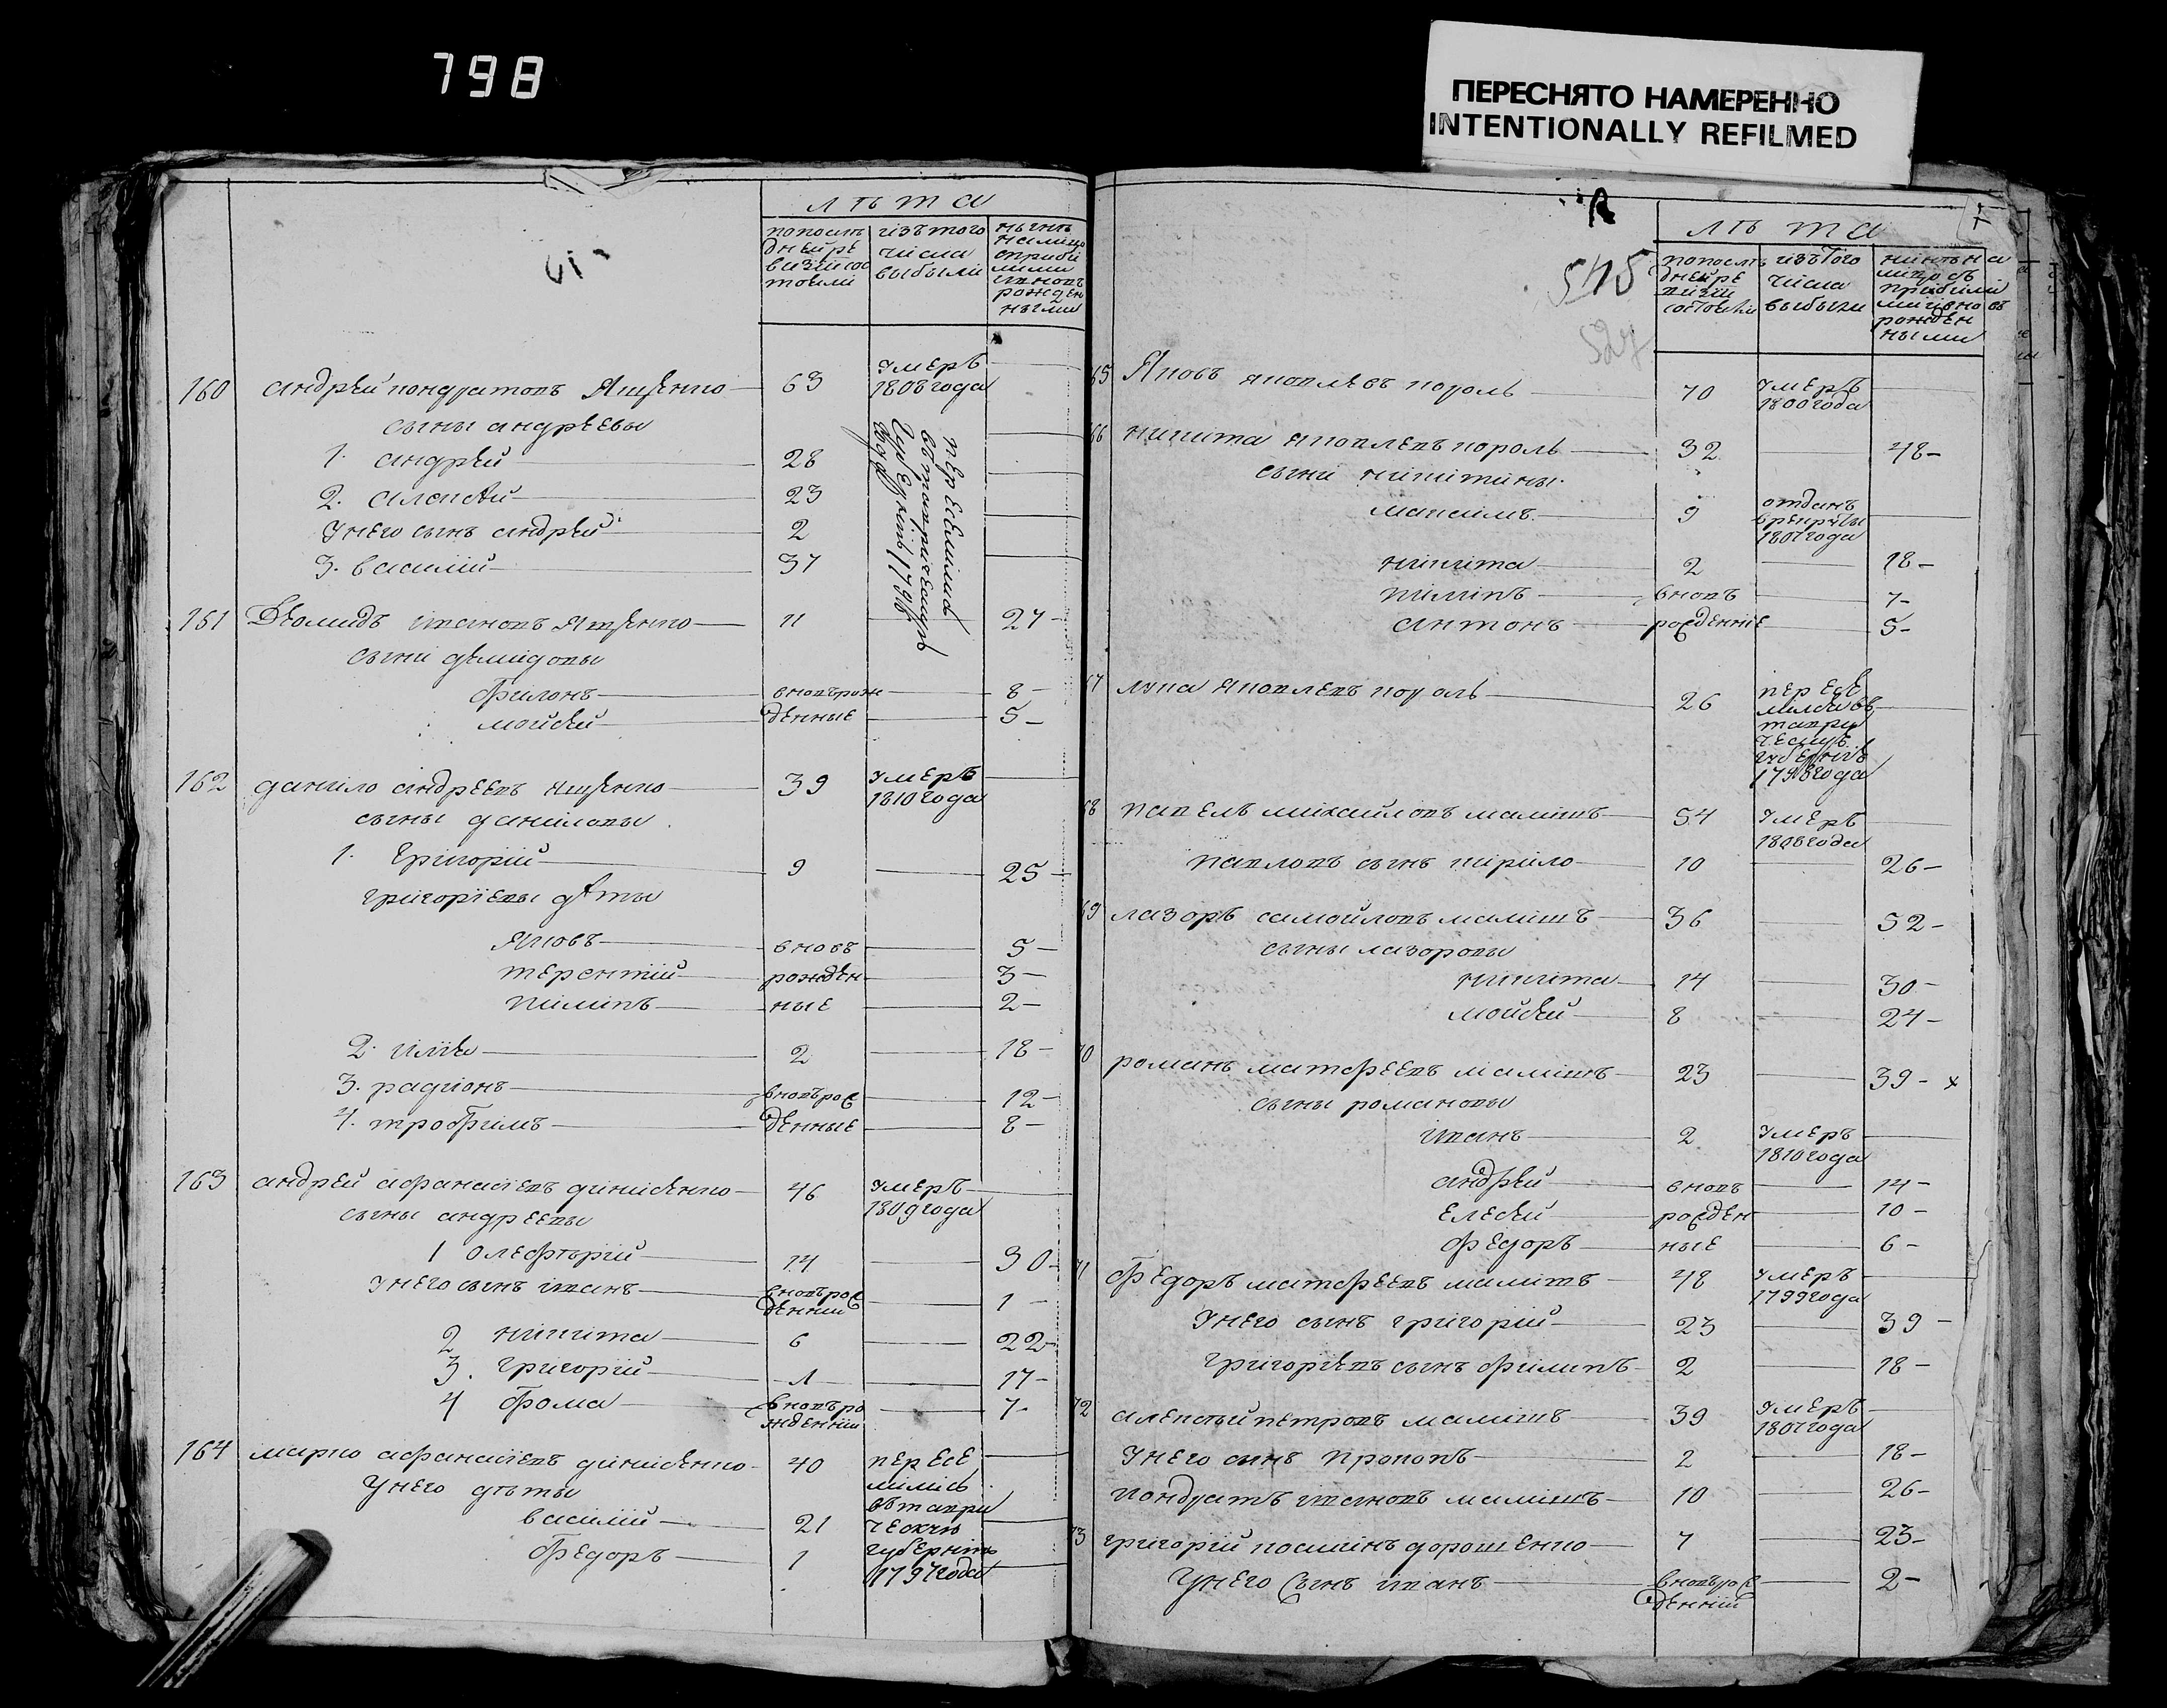 798
ПЕРЕСНЯТО НАМЕРЕННО
INTENTIONALLY REFILMED
лѣта
попослѣ дней ре визіи сос тояли
изътого числа выбыли
нынѣ налицо
рожден ными
160 андрей кондратовъ Ященко 63 умеръ 1808 года
сыны андреевы
1. андрей 28
2. алексѣй 23
Унего сынъ андрей 2
3. василій 37
переселились втаврическую губернію 1798 года
161 Демидъ ивановъ Ященко 11 27
сыни демидовы
филонъ вновьрож 8
мойсей денные 5
162 данило андреевъ Ященко 39 умеръ 1810 года
сыны даниловы
1. Григорій 9 25
григоріевы дѣты
Яковъ вновъ 5
терентій рожден 3
пилипъ ные 2
2. илія 2 18
3. радіонъ вновърож 12
4. трофимъ денные 8
163 андрей афанасіевъ динисенко 46 умеръ 1809 года
сыны андреевы
1 олефтѣрій 14 30
Унего сынъ иванъ вновърож денній 1
2 никита 6 22
3. Григорій 1 17
4 фома вновъро жденній 7
164 марко афанасіевъ динисенко 40
Унего дѣты
василій 21
федоръ 1
пересе лились втаври ческую губернію 1797 года
545
524
лѣта
попослѣ дней ре визіи состояли
изътого числа выбыли
нинѣ на лицо съ прибыли ми ивновъ рожден ными
65 Яковъ яковлевъ король 70 умеръ 1800 года
66 никита яковлевъ король 32 48
сыни никитины
максимъ 9 отданъ врекруты 1807 года
никита 2 18
пилипъ вновъ 7
антонъ рожденніе 5
67 лука яковлевъ король 26 пересе лился въ таври ческую губернію 1798 года
68 павелъ михайловъ малишъ 54 умеръ 1806 года
павловъ сынъ кирило 10 26
69 лазоръ самойловъ малишъ 36 52
сыны лазоровы
никита 14 30
мойсей 8 24
70 романъ матфеевъ малишъ 23 39 х
сыны романовы
иванъ 2 умеръ 1810 года
андрей вновъ 14
елесей рожден 10
федоръ ные 6
71 федоръ матфеевъ малишъ 48 умеръ 1799 года
Унего сынъ григорій 23 39
григоріевъ сынъ филипъ 2 18
72 алексѣй петровъ малишъ 39 умеръ 1807 года
Унего синъ прокопъ 2 18
кондратъ ивановъ малишъ 10 26
73 григорій космінъ дорошенко 7 23
Унего сынъ иванъ вновърож денній 2